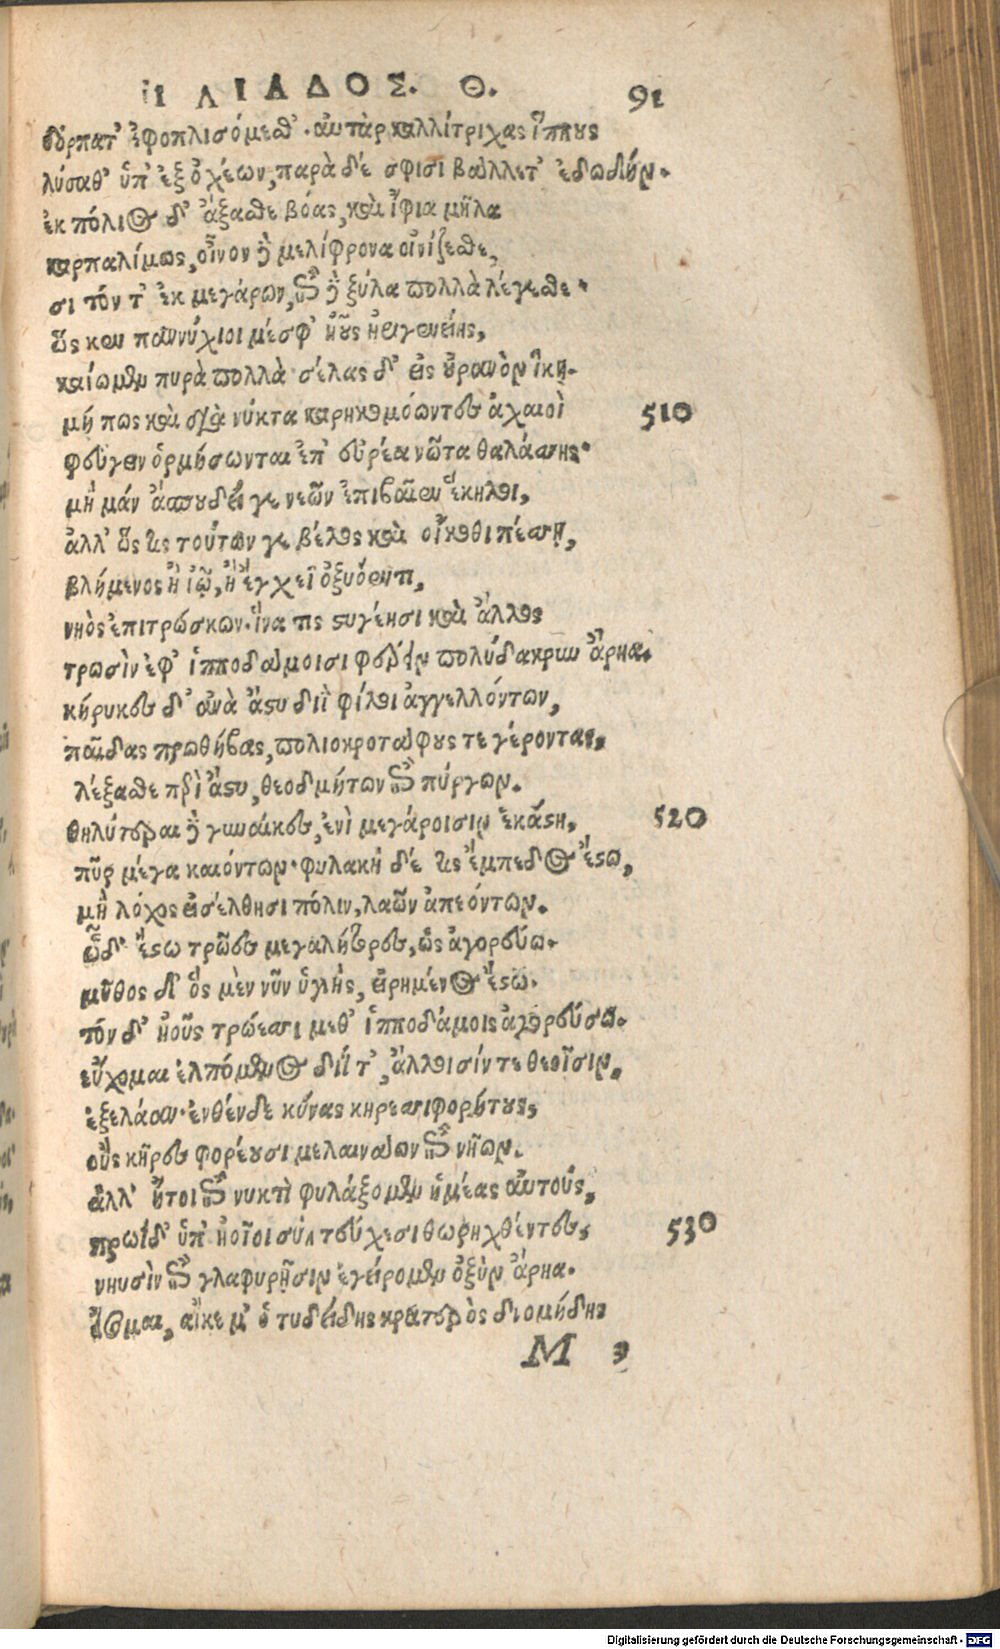 ἸΛΙΆΔΟΣ. Θ. 91
δόρπατ' ἐφοπλισόμεσθ'· αὐτὰρ καλλίτριχας ἵππους
λύσαθ' ὑπ' ἐξ ὀχέων, παρὰ δέ σφισι βάλλετ' ἐδωδήν.
ἐκ πόλιος δ' ἄξασθε βόας, καὶ ἴφια μῆλα
καρπαλίμως, οἶνον δὲ μελίφρονα οἰνίζεσθε,
σιτόν τ' ἐκ μεγάρων, ἐπὶ δὲ ξύλα πολλὰ λέγεσθε·
ὥς κεν παννύχιοι μέσφ' ἠοῦς ἠριγενείης,
καίωμεν πυρὰ πολλὰ σέλας δ' εἰς οὐρανὸν ἵκῃ.
μή πως καὶ διὰ νύκτα καρηκομόωντες ἀχαιοὶ 510
φεύγειν ὁρμήσωνται ἐπ' εὐρέα νῶτα θαλάσσης·
μὴ μάν ἀσπουδεί γε νεῶν ἐπιβαῖεν ἕκηλοι,
ἀλλ' ὥς τις τούτων γε βέλος καὶ οἴκοθι πέσσῃ,
βλήμενος ἢ ἰῷ, ἢ ἔγχεϊ ὀξυόεντι,
νηὸς ἐπιτρώσκων· ἵνα τις στυγέησι καὶ ἄλλος
τρωσὶν ἐφ' ἱπποδάμοισι φέρειν πολύδακρυν ἄρηα.
κήρυκες δ' ἀνὰ ἄστυ διῒ φίλοι ἀγγελλόντων,
παῖδας πρωθήβας, πολιοκροτάφους τε γέροντας,
λέξασθε περὶ ἄστυ, θεοδμήτων ἐπὶ πύργων.
θηλύτεραι δὲ γυναῖκες, ἐνὶ μεγάροισιν ἑκάστη, 520
πῦρ μέγα καιόντων· φυλακὴ δέ τις ἔμπεδος ἔστω,
μὴ λόχος εἰσέλθησι πόλιν, λαῶν ἀπεόντων.
ὧδ' ἔστω τρῶες μεγαλήτορες, ὡς ἀγορεύω.
μῦθος δ' ὃς μὲν νῦν ὑγιὴς, εἰρημένος ἔστω.
τὸν δ' ἠοῦς τρώεσσι μεθ' ἱπποδάμοις ἀγορεύσω.
εὔχομαι ἐλπόμενος διΐ τ', ἄλλοισίν τε θεοῖσιν,
ἐξελάαν· ἐνθένδε κύνας κηρεσσιφορήτους,
οὓς κῆρες φορέουσι μελαινάων ἐπὶ νηῶν.
ἀλλ' ἤτοι ἐπὶ νυκτὶ φυλάξομεν ἡμέας αὐτούς,
πρωῒ δ' ὑπ' ἠοῖοι σὺν τεύχεσι θωρηχθέντες, 530
νηυσὶν ἐπὶ γλαφυρῇσιν ἐγείρομεν ὀξὺν ἄρηα.
εἴσομαι, αἴκε μ' ὁ τυδείδης κρατερὸς διομήδης
M 3
Digitalisierung gefördert durch die Deutsche Forschungsgemeinschaft - DFG